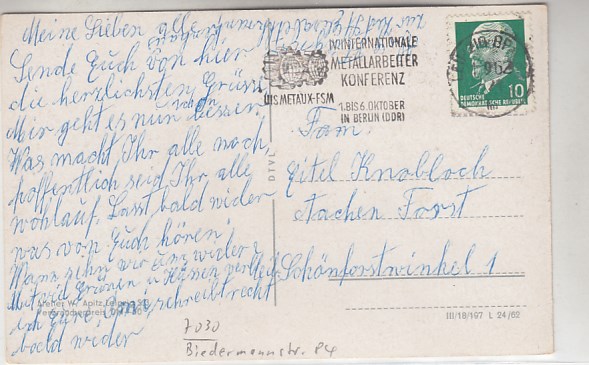 Meine Lieben alle
Sende Euch von hier
die herzlichsten Grüße
Mir geht es nun
schon besser,
Was macht Ihr alle noch,
hoffentlich seid Ihr alle
wohlauf. Lasst bald wider
was von Euch hören!
Wann sehn wir uns wider?
Mit viel Grüssen u Küssen
ich Eure, schreibt recht
bald wider
Atelier W. Apitz, Leipzig
IV. INTERNATIONALE
METALLARBEITER
KONFERENZ
UIS METAUX-FSM
1. BIS 6. OKTOBER
IN BERLIN (DDR)
10
DEUTSCHE
DEMOKRATISCHE REPUBLIK
DTVL
Fam.
Eitel Knobloch
Aachen Forst
Schönforstwinkel 1
III/18/197 L 24/62
7030
Biedermannstr. 84